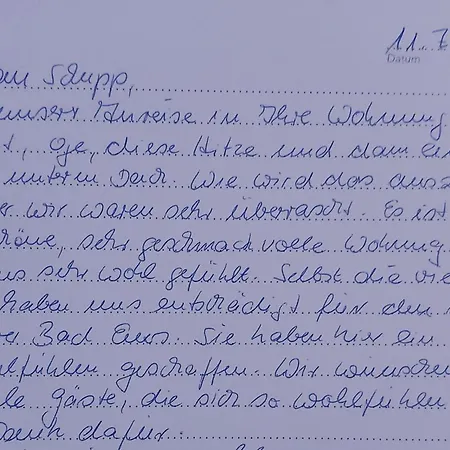 11.7
Datum
Schupp,
unsere Anreise in Ihre Wohnung
t, Oje, diese Hitze und dann ein
unterm Dach. Wie wird das aus
er wir waren sehr überrascht. Es ist
höne, sehr geschmackvolle Wohnung.
ns sehr wohl gefühlt. Selbst die vie
haben uns entschädigt für den
Bad Ems. Sie haben hier ein
lfühlen geschaffen. Wir wünschen
le Gäste, die sich so wohlfühlen
Dank dafür.